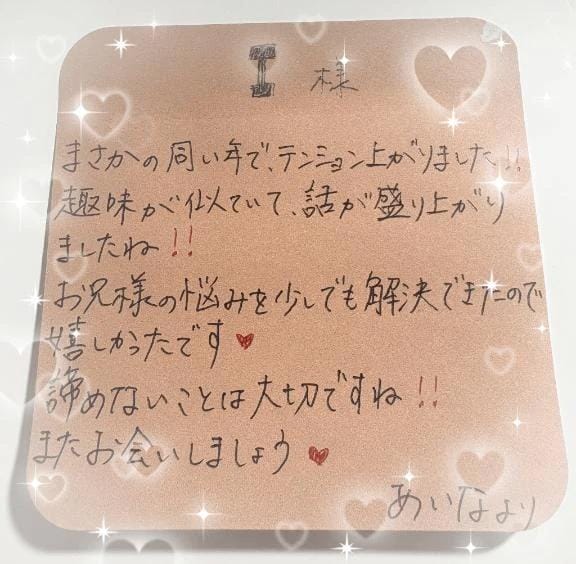 I 様
まさかの同い年で、テンション上がりました!!
趣味が似ていて、話が盛り上がり
ましたね!!
お兄様の悩みを少しでも解決できたので
嬉しかったです♥
諦めないことは大切ですね!!
またお会いしましょう♥
あいなより